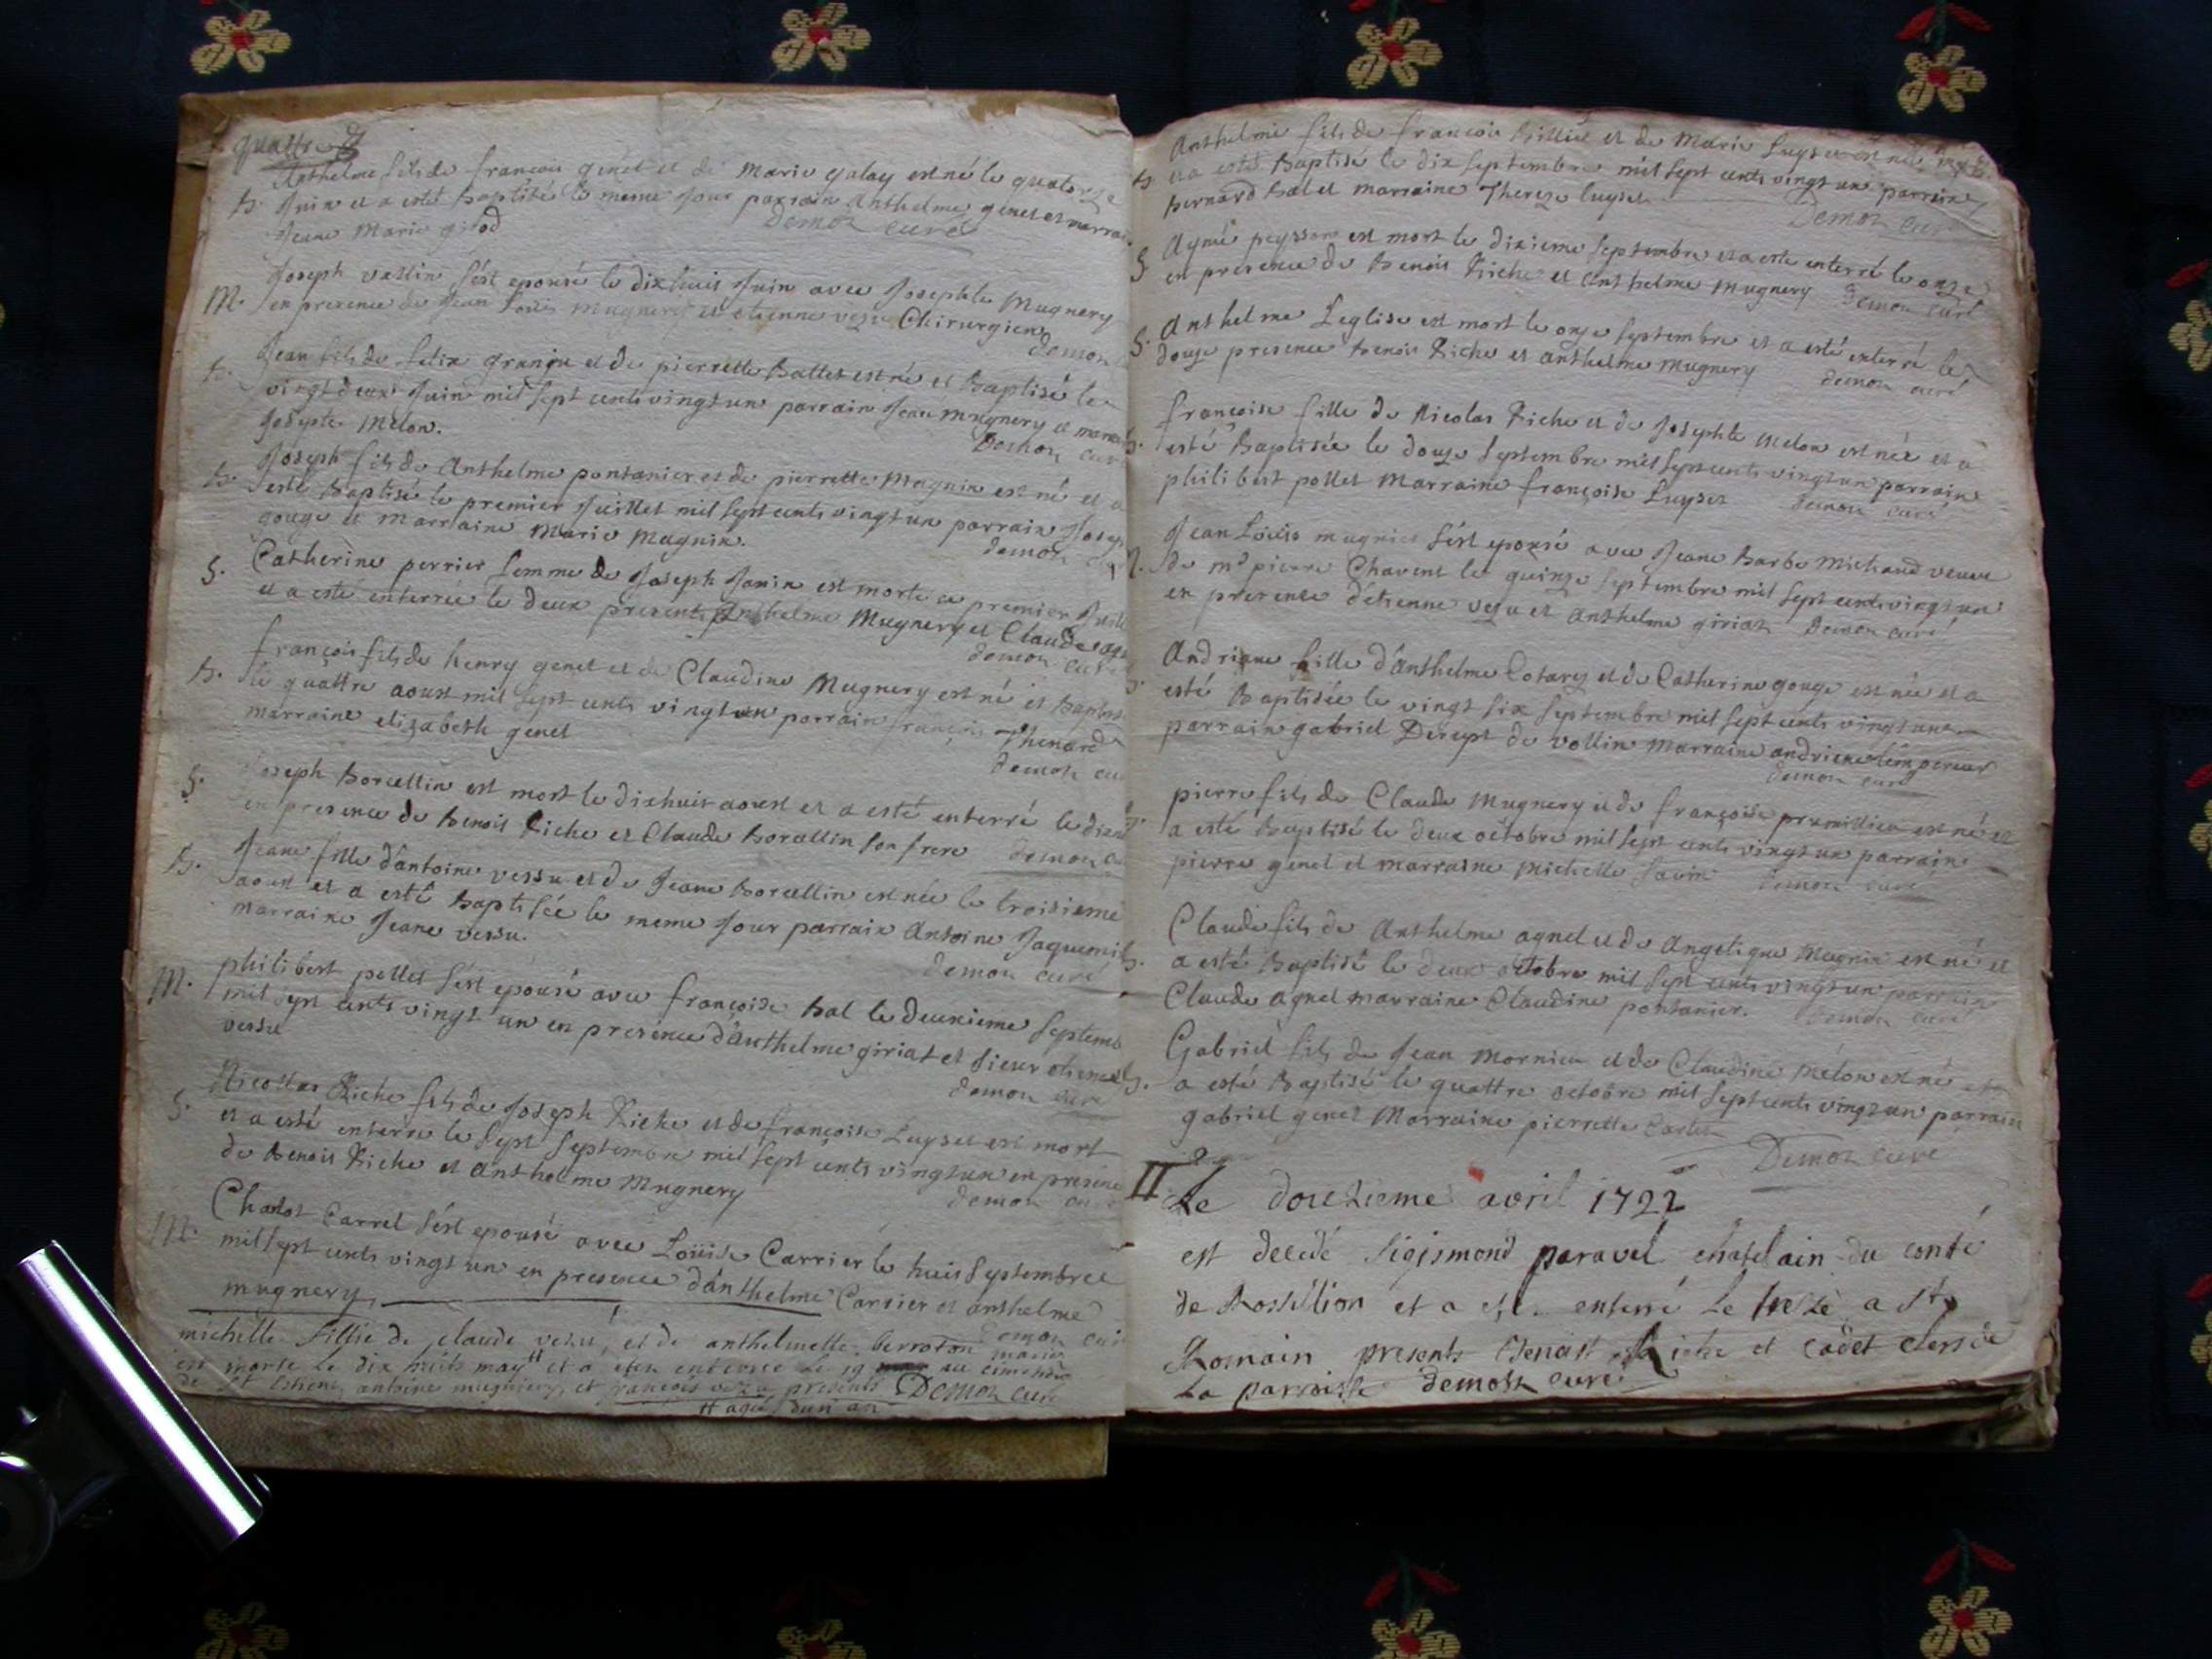 quattre
B. Anthelme fils de francois genet et de Marie galay est né le quatorze
Juin et a esté Baptisé le meme Jour parrain Anthelme genet et marrai
Jeane Marie gifod
Demoz curé
M. Joseph vallin s'est epousé le dixhuit Juin avec Josephte Mugnery
en presence de Jean Louis mugnery et etienne vezu Chirurgien
demoz
B. Jean fils de felix granju et de pierrette Battet est né et Baptisé le
vingt deux Juin mil sept cents vingt un parrain Jean mugnery et marr
Josepte Melon.
Demoz curé
B. Joseph fils de Anthelme pontanier et de pierrette Magnin est né et a
esté Baptisé le premier Juillet mil sept cents vingt un parrain Josep
gouge et marraine Marie Magnin.
demoz cu
S. Catherine perrier femme de Joseph Janin est morte ce premier Juill
et a esté enterrée le deux presents Anthelme Mugnery et Claude agn
demoz curé
B. francois fils de henry genet et de Claudine Mugnery est né et Baptis
le quattre aoust mil sept cents vingt un parrain françois Thenard
marraine elizabeth genet
demoz cu
S. Joseph Borcellin est mort le dixhuit aoust et a esté enterré le dixn
en presence de Benoit Riche et Claude Borcellin son frere demoz cu
B. Jeane fille d'antoine vessu et de Jeane Borcellin est née le troisieme
aoust et a esté Baptisée le meme Jour parrain Antoine Jaquemi
marraine Jeane vessu.
demoz curé
M. philibert pollet s'est epousé avec françoise bal le deuxieme septemb
mil sept cents vingt un en presence d'anthelme giriat et sieur etiene
vessu
demoz curé
S. Nicollas Riche fils de Joseph Riche et de françoise Luyset est mort
et a esté enterré le sept septembre mil sept cents vingt un en presene
de Benoit Riche et Anthelme Mugnery
demoz curé
M. Charlot Carrel s'est epousé avec Loüise Carrier le huit septembre
mil sept cents vingt un en presence d'anthelme Carrier et anthelme
mugnery,
demoz curé
michelle fillie de claude vezu, et de anthelmette berroton mariés
est morte le dix huits may # et a este enterree le 19 au cimetiere
de St Estiene, antoine mugniery, et françois vezu presents Demoz curé
# agée d'un an
Anthelme fils de francois billiet et de Marie Luyset est né
B. et a esté Baptisé le dix septembre mil sept cents vingt un parrain
bernard bal et marraine Thereze luyset
Demoz curé
S. Aymé peysson est mort le dixieme septembre et a esté enterré le onze
en presence de Benoit Riche et Anthelme Mugnery Demoz curé
S. Anthelme Leglise est mort le onze septembre et a esté enterré le
douze presence Benoit Riche et anthelme mugnery demoz curé
françoise fille de Nicolas Riche et de Josephte Melon est née et a
B. esté Baptisée le douze septembre mil sept cents vingt un parrain
philibert pollet Marraine françoise Luyset demoz curé
Jean Loüis mugnier s'est epousé avec Jeane Barbe Michaud veuve
M. de md pierre Chavent le quinze septembre mil sept cents vingt un
en presence d'etienne vezu et anthelme giriat Demoz curé
Andriane fille d'Anthelme Cotarey et de Catherine gouge est née et a
B. esté Baptisée le vingt six septembre mil sept cents vingt un
parrain gabriel de vollin marraine andriene lempereur
demoz curé
pierre fils de Claude Mugnery et de françoise prumillieu est né et
B. a esté Baptisé le deux octobre mil sept cents vingt un parrain
pierre genet et marraine michelle savin demoz curé
Claude fils de Anthelme agnel et de Angelique Magnin est né et
B. a esté Baptisé le deux octobre mil sept cents vingt un parrain
Claude agnel marraine Claudine pontanier. demoz curé
Gabriel fils de Jean Mornieu et de Claudine Melon est né et
B. a esté Baptisé le quattre octobre mil sept cents vingt un parrain
gabriel genet Marraine pierrette Carlet
Demoz curé
Le douzieme avril 1722
est decedé Sigismond paravel chatelain du conté
de Rossillion et a este enterré le treze a St
Romain presents Benoit Riche et cadet clers de
La parroisse demoz curé